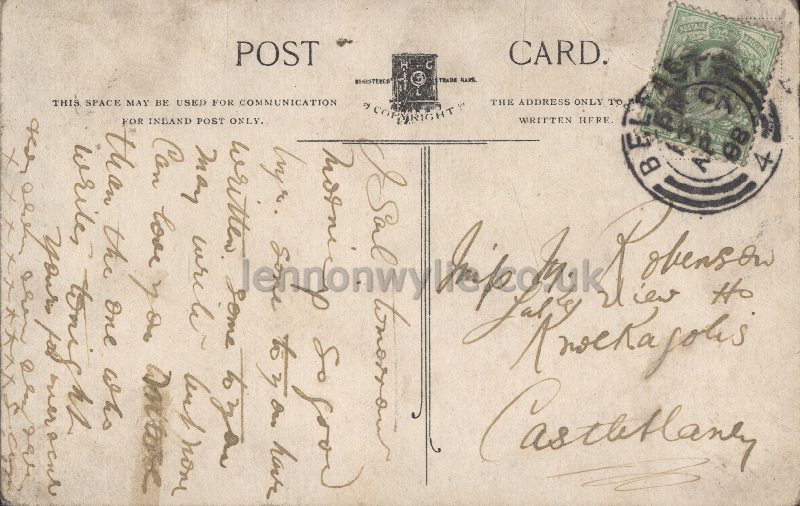 POST CARD.
REGISTERED TRADE MARK.
COPYRIGHT
THIS SPACE MAY BE USED FOR COMMUNICATION
FOR INLAND POST ONLY.
THE ADDRESS ONLY TO
WRITTEN HERE.
POSTAGE
BELFAST
AP
08
4
I Sail tomorrow
morning So good
bye. Some to you have
written. Some to you
may write - but none
Can love you More
than the one who
writes tonight
Yours
x x x x x x x x
Miss M. Robenson
View Ho
Knockagolis
Castleblaney
lennonwylie.co.uk